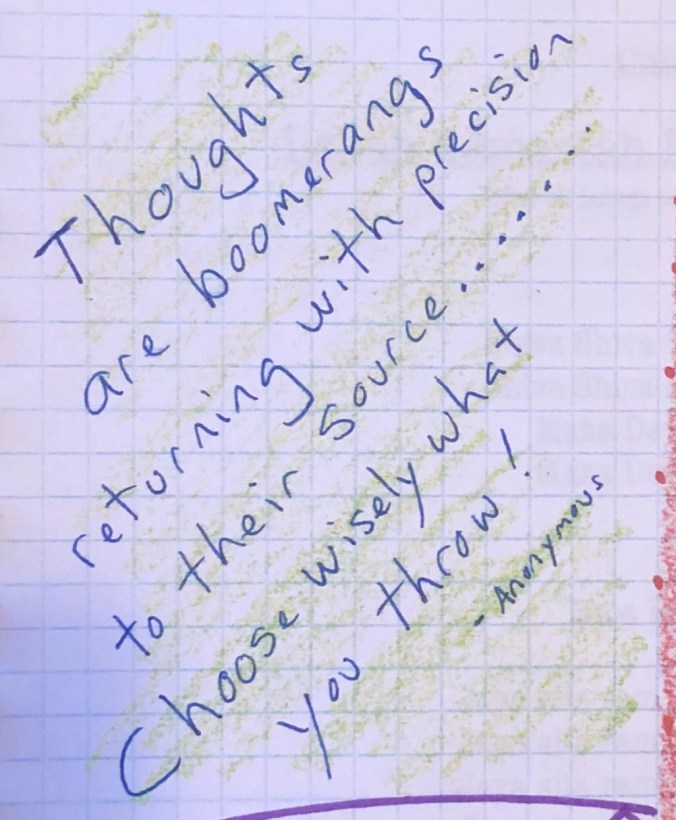 Thoughts
are boomerangs
returning with precision
to their source.......
Choose wisely what
you throw!
- Anonymous